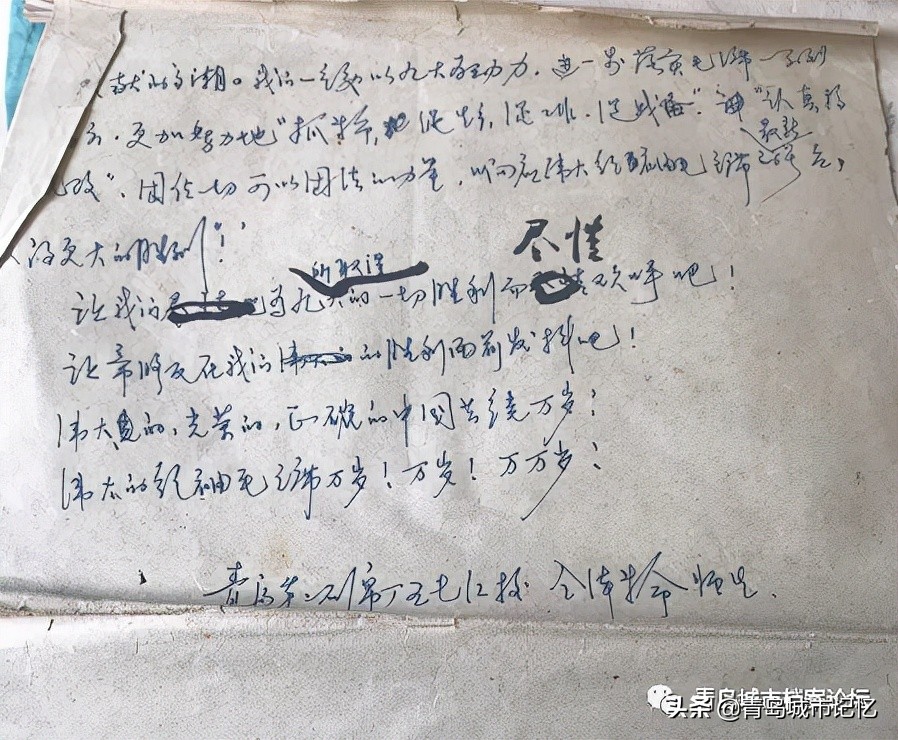 献的高潮。我们一定要以九大为动力,进一步落实毛主席一系列
示,更加努力地"抓革命,促生产,促工作,促战备","认真搞
改",团结一切可以团结的力量,以而在伟大领袖毛主席最新号召
设更大的胜利!"
让我们为九大所取得的一切胜利而尽情欢呼吧!
让帝修反在我们的胜利面前发抖吧!
伟大的,光荣的,正确的中国共产党万岁!
伟大的领袖毛主席万岁!万岁!万万岁!
青岛第二印染厂五七红校 全体革命师生.
青岛城市档案论坛
头条 @青岛城市记忆